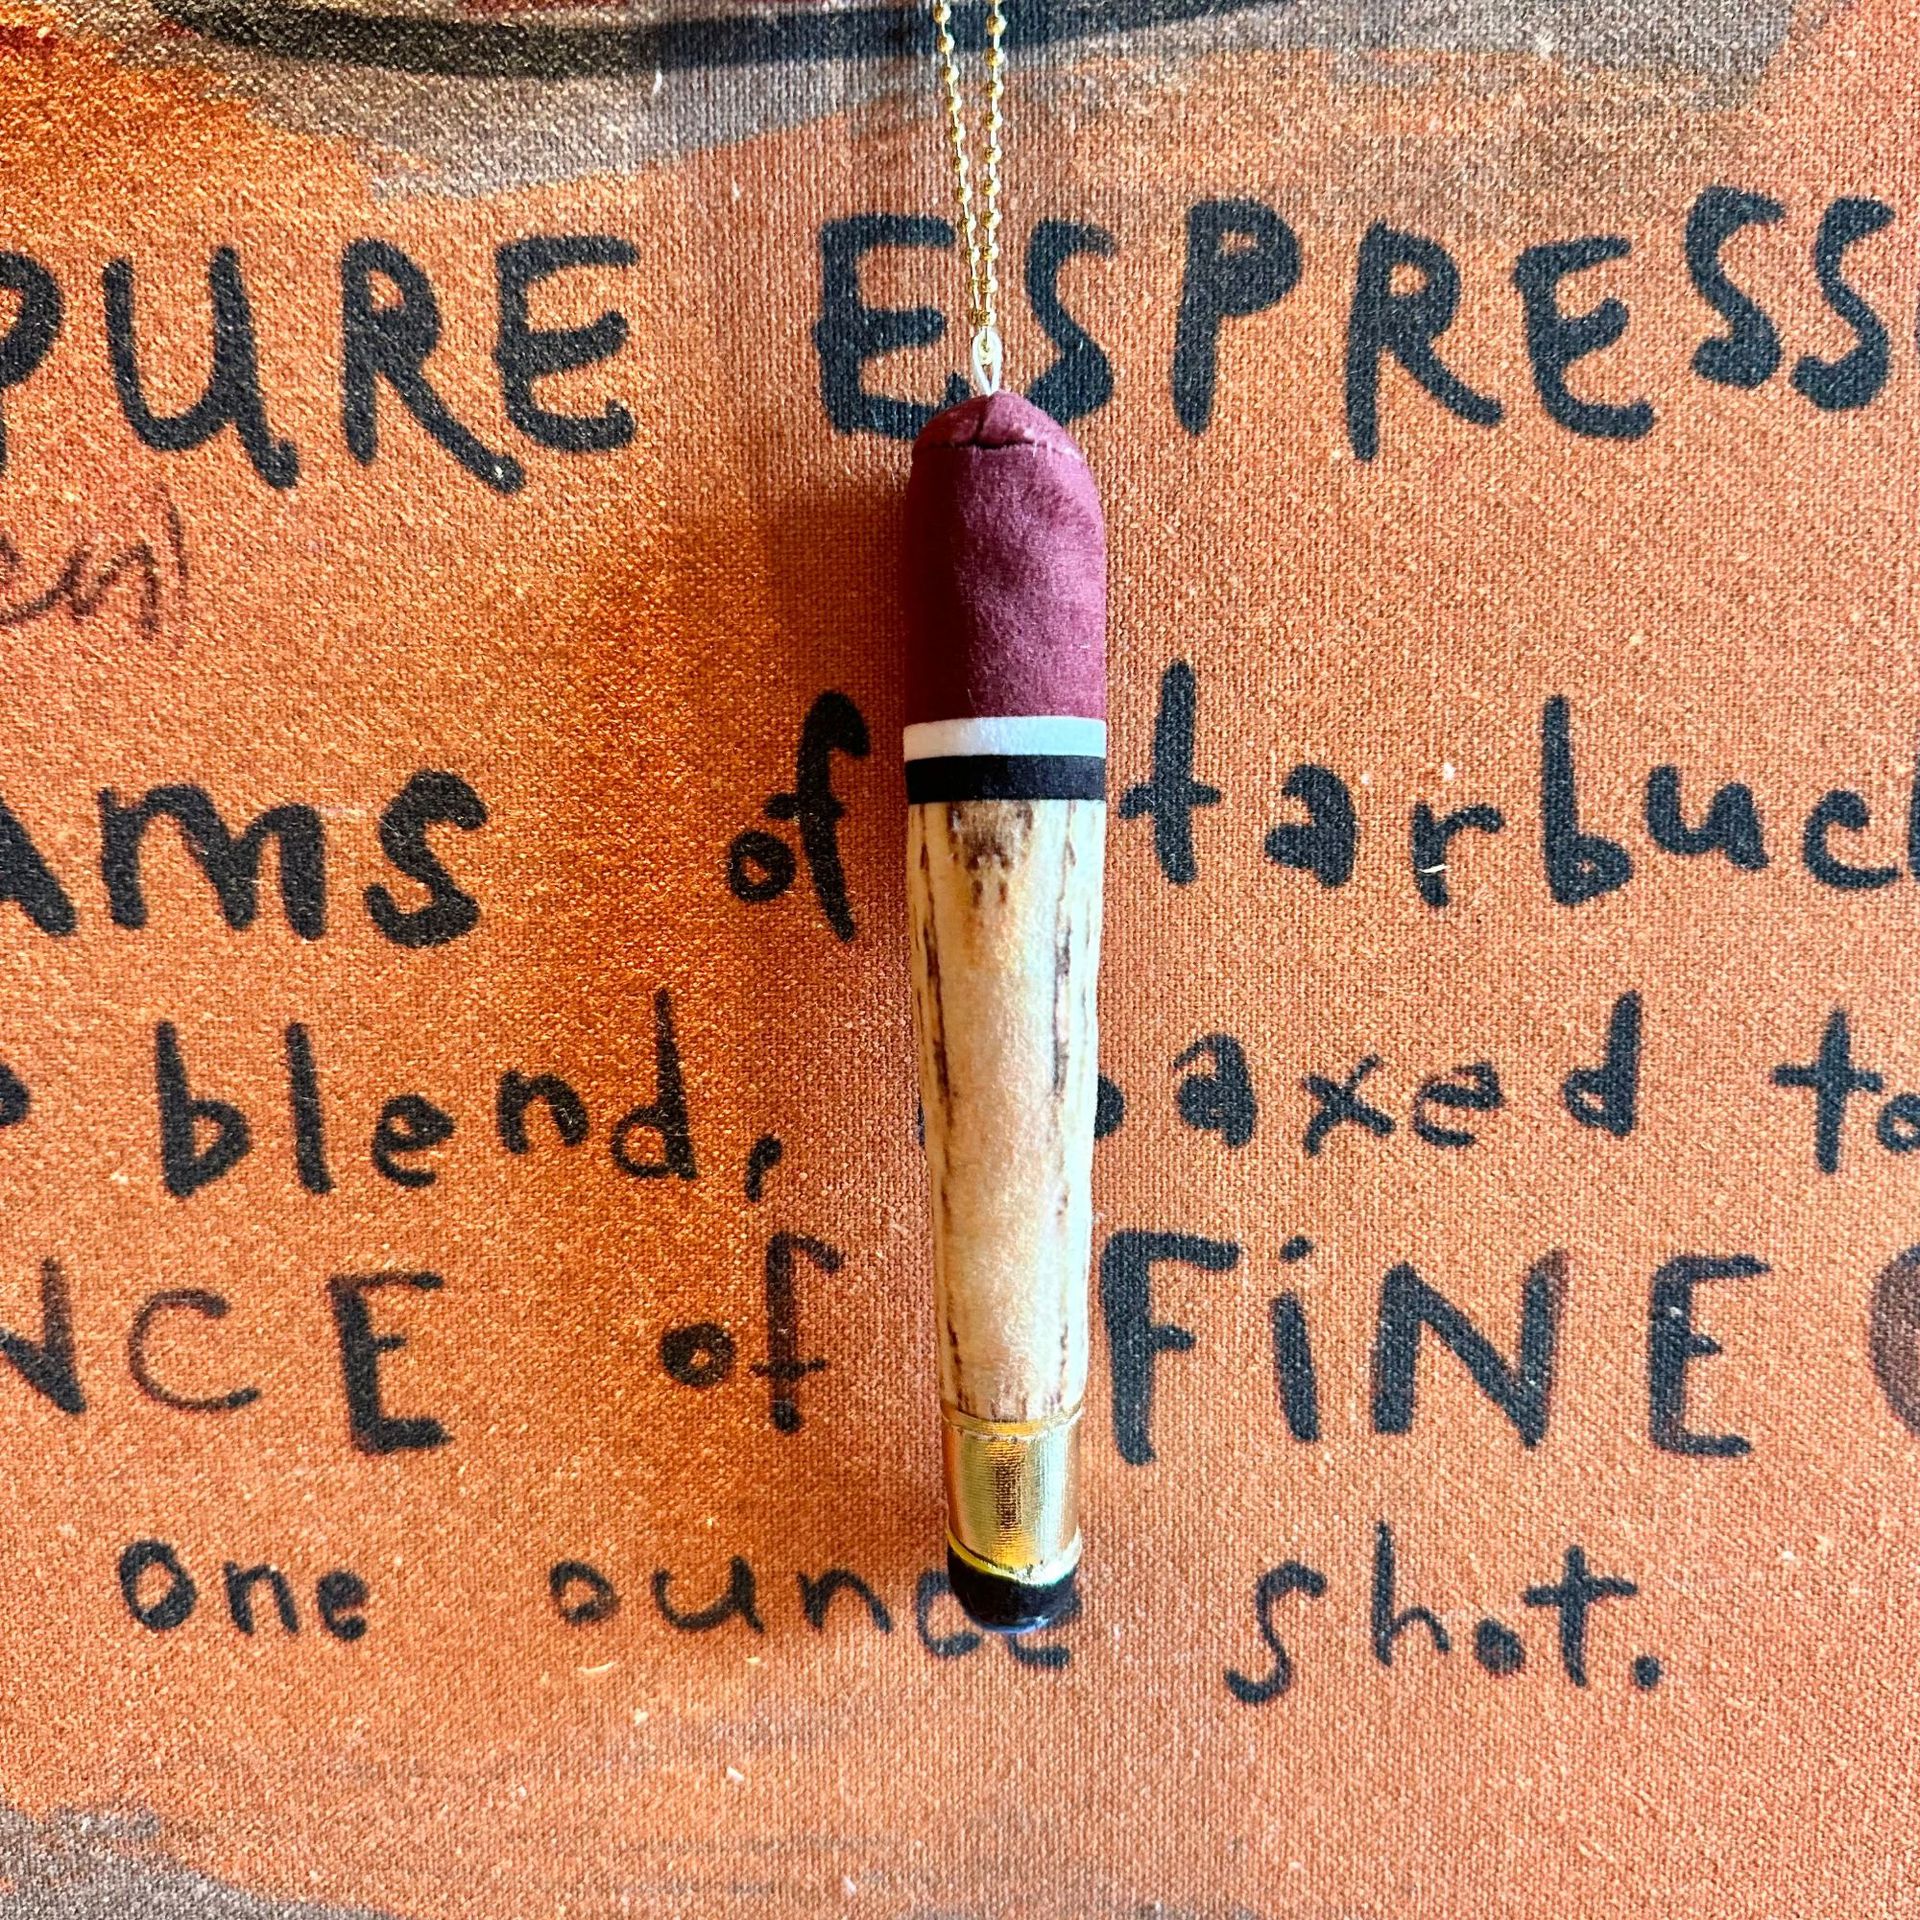 PURE ESPRESS
of starbuc
blend, coaxed to
of FiNE
one ounce shot.